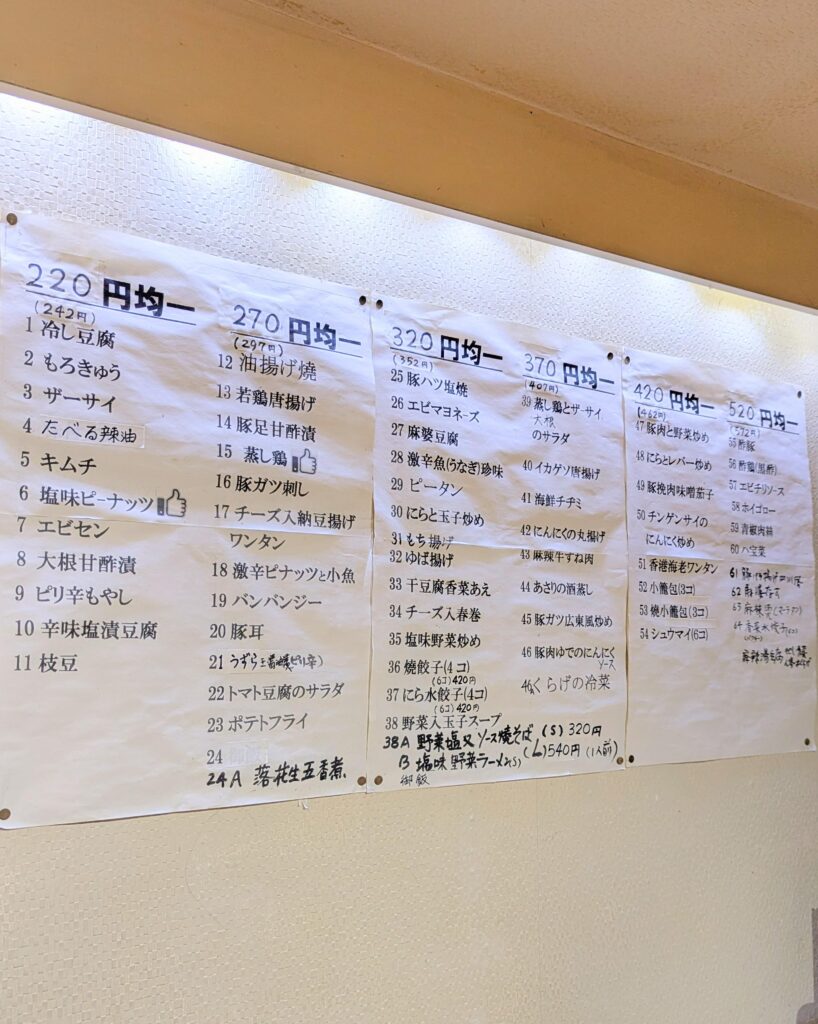 220 円均一
(242円)
1 冷し豆腐
2 もろきゅう
3 ザーサイ
4 たべる辣油
5 キムチ
6 塩味ピーナッツ
7 エビセン
8 大根甘酢漬
9 ピリ辛もやし
10 辛味塩漬豆腐
11 枝豆
270 円均一
(297円)
12 油揚げ焼
13 若鶏唐揚げ
14 豚足甘酢漬
15 蒸し鶏
16 豚ガツ刺し
17 チーズ入納豆揚げ
ワンタン
18 激辛ピナッツと小魚
19 バンバンジー
20 豚耳
21 うずら玉
22 トマト豆腐のサラダ
23 ポテトフライ
24
24A 落花生五香煮
320 円均一
(352円)
25 豚ハツ塩焼
26 エビマヨネーズ
27 麻婆豆腐
28 激辛魚(うなぎ)珍味
29 ピータン
30 にらと玉子炒め
31 もち揚げ
32 ゆば揚げ
33 干豆腐香菜あえ
34 チーズ入春巻
35 塩味野菜炒め
36 焼餃子(4コ)
(6コ)420円
37 にら水餃子(4コ)
(6コ)420円
38 野菜入玉子スープ
38A 野菜塩又ソース焼そば (S) 320円
(L)540円(1人前)
B 塩味野菜ラーメン(S)
御飯
370 円均一
(407円)
39 蒸し鶏とザーサイ
大根
のサラダ
40 イカゲソ唐揚げ
41 海鮮チヂミ
42 にんにくの丸揚げ
43 麻辣牛すね肉
44 あさりの酒蒸し
45 豚ガツ広東風炒め
46 豚肉ゆでのにんにく
ソース
46 くらげの冷菜
420 円均一
(462円)
47 豚肉と野菜炒め
48 にらとレバー炒め
49 豚挽肉味噌茄子
50 チンゲンサイの
にんにく炒め
51 香港海老ワンタン
52 小籠包(3コ)
53 焼小籠包(3コ)
54 シュウマイ(6コ)
520 円均一
(572円)
55 酢豚
56 酢鶏(黒酢)
57 エビチリソース
58 ホイコーロー
59 青椒肉絲
60 八宝菜
61
62
63
64